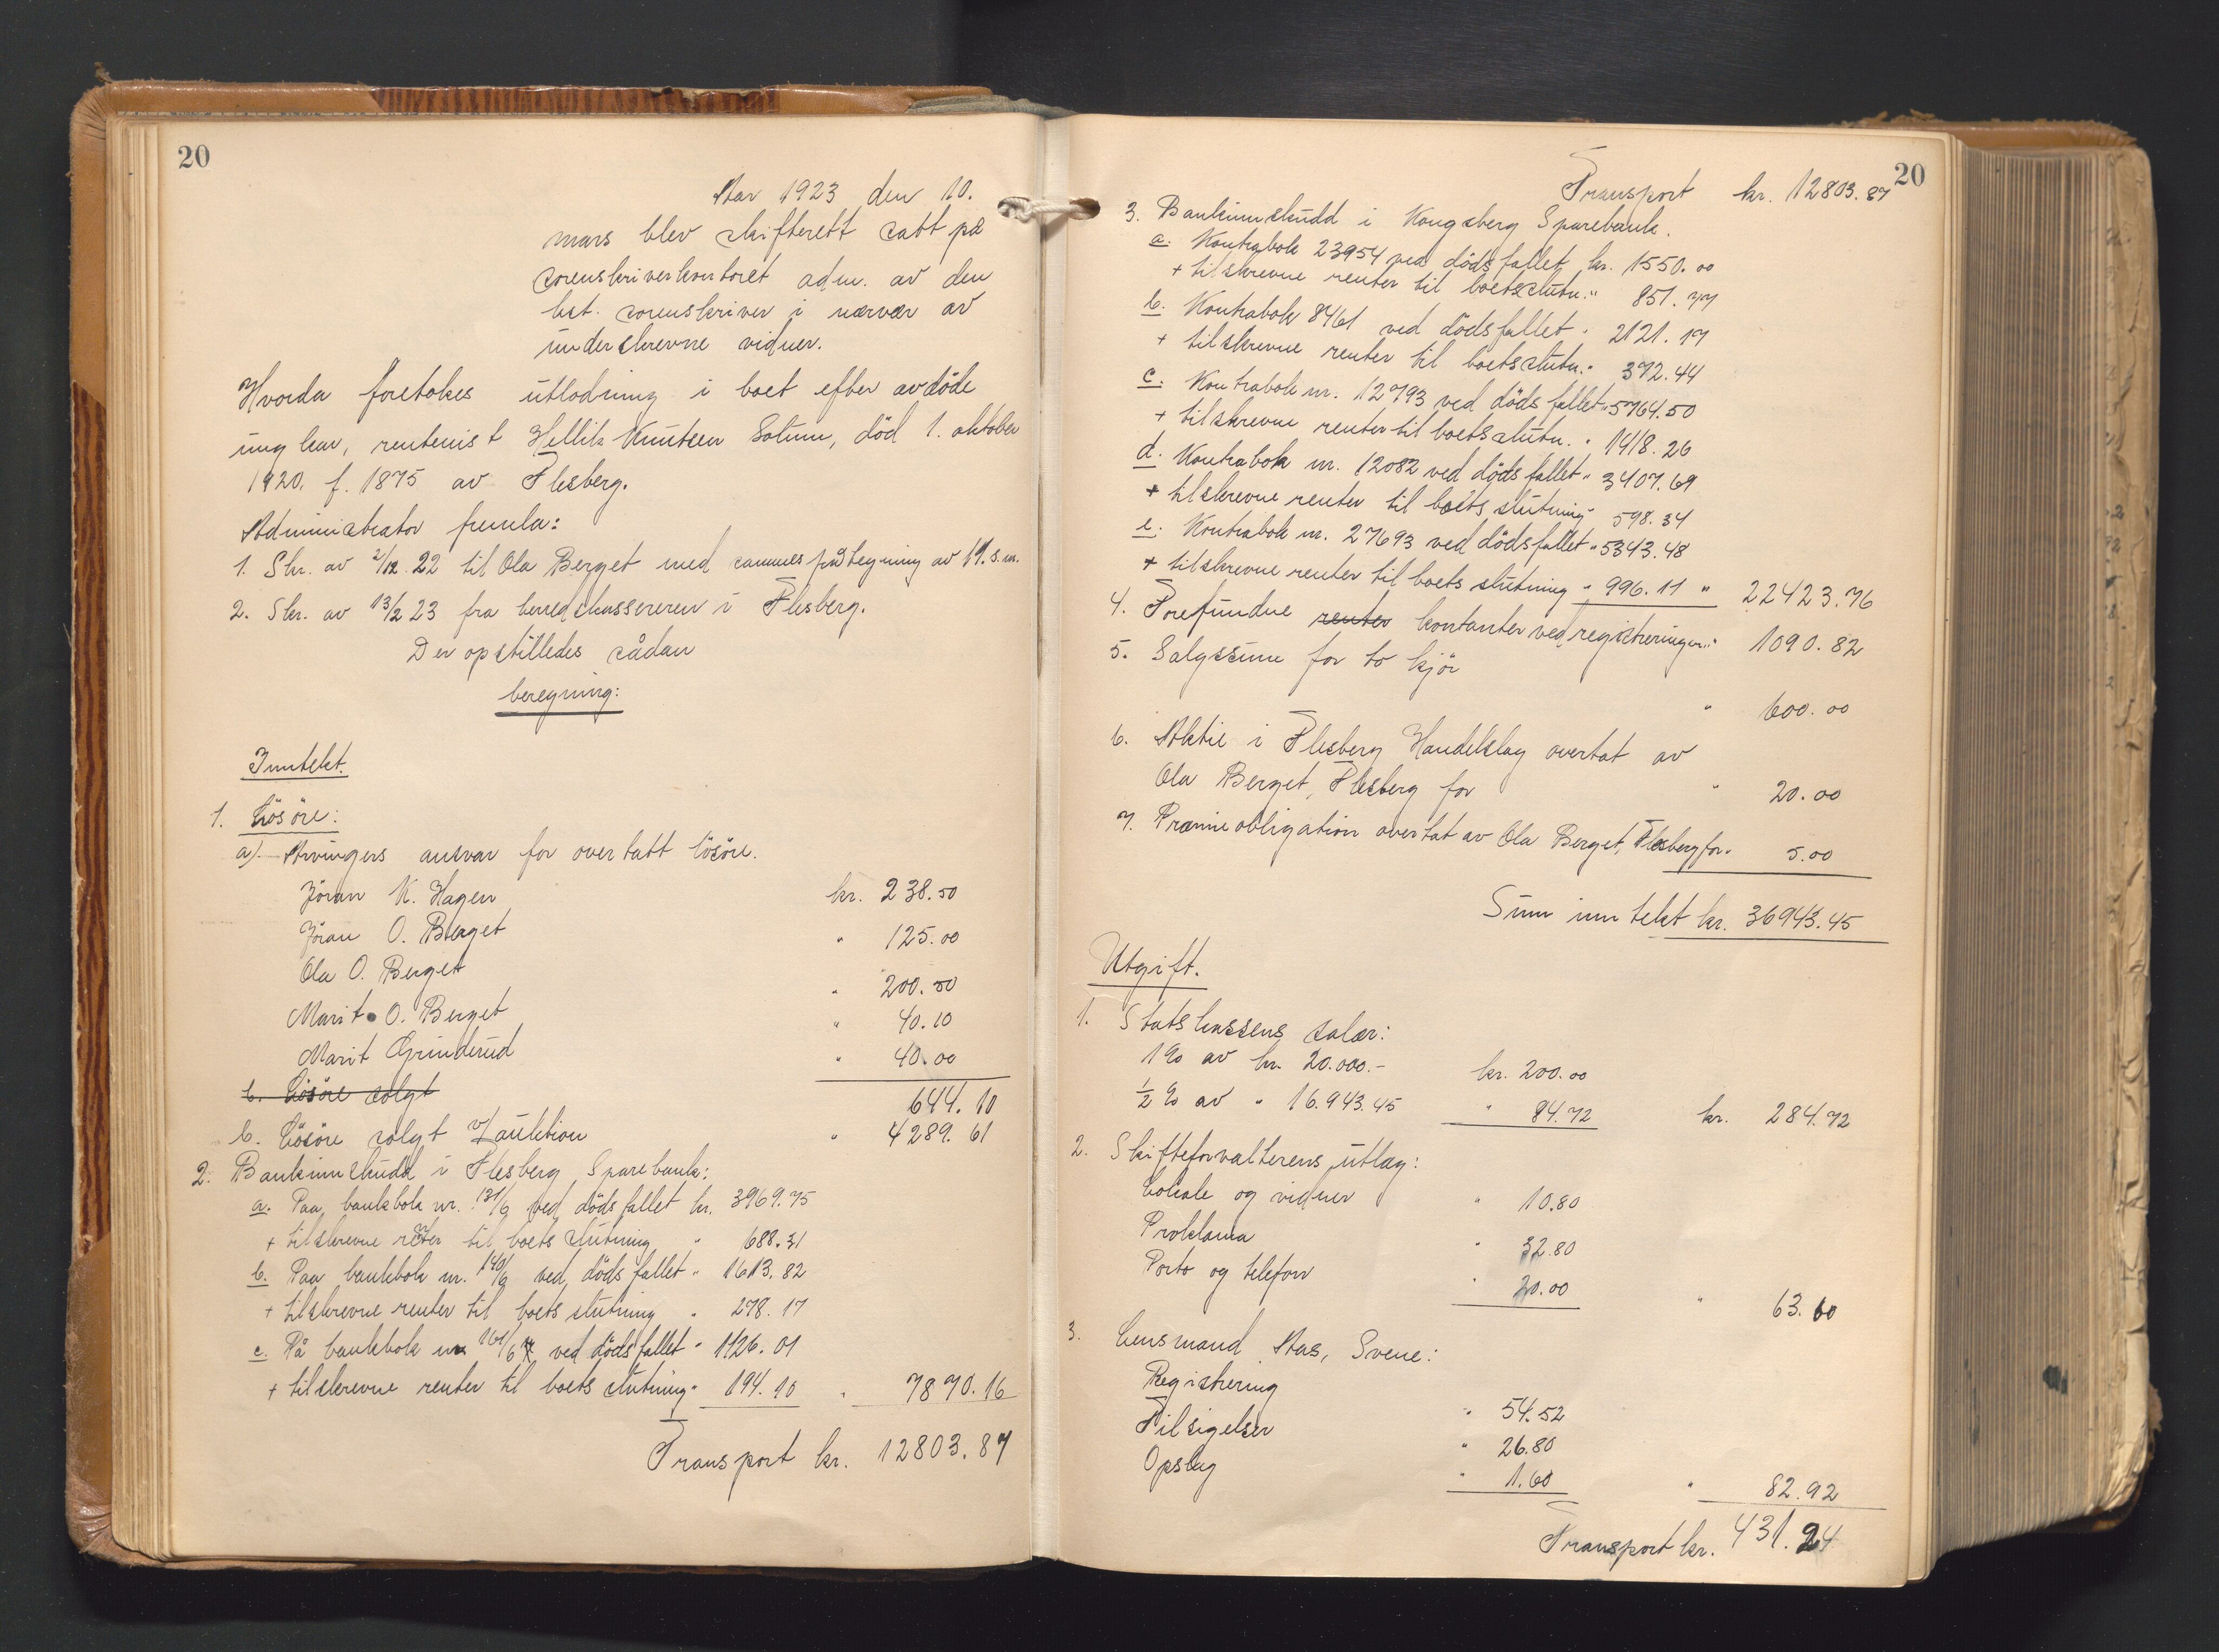 20
Aar 1923 den 10.
mars blev skifterett satt på
sorenskriverkontoret adm. av den
bst. sorenskriver i nærvær av
underskrevne vidner.
Hvorda foretokes utlodning i boet efter avdöde
ungkar, rentenist Hellik Knutsen Solum, död 1. oktober
1920. f. 1875 av Flesberg.
Administrator fremla:
1. Skr. av 2/12 22 til Ola Berget med sammes påtegning av 19. s.m.
2. Skr. av 13/2 23 fra herredskassereren i Flesberg.
Der opstilledes sådan
beregning:
Inntekt.
1. Lösöre:
a). Arvingers ansvar for overtatt lösöre.
Jöran K. Hagen kr. 238.50
Jöran O. Berget " 125.00
Ola O. Berget " 200.50
Marit O. Berget " 40.10
Marit Grinderud " 40.00
b. Lösöre solgt
644.10
b. Lösöre solgt v/auktion " 4289.61
2. Bankinnskudd i Flesberg Sparebank:
a. Paa bankbok nr. 131/9 ved dödsfallet kr. 3969.75
+ tilskrevne renter til boets slutning " 688.31
b. Paa bankbok nr. 140/9 ved dödsfallet " 1613.82
+ tilskrevne renter til boets slutning " 278.17
c. På bankbok nr 161/6 ved dödsfallet " 1126.01
+ tilskrevne renter til boets slutning " 194.10 " 7870.16
Transport kr. 12803.87
20
Transport kr. 12803.87
3. Bankinnskudd i Kongsberg Sparebank.
a. Kontrabok 23954 ved dödsfallet kr. 1550.00
+ tilskrevne renter til boetsslutn. " 851.77
b. Kontrabok 8461 ved dödsfallet " 2121.17
+ tilskrevne renter til boetsslutn. " 372.44
c. Kontrabok nr. 12793 ved dödsfallet " 5764.50
+ tilskrevne renter til boetsslutn. " 1418.26
d. Kontrabok nr. 12082 ved dödsfallet " 3407.69
+ tilskrevne renter til boets slutning " 598.34
e. Kontrabok nr. 27693 ved dödsfallet " 5343.48
+ tilskrevne renter til boets slutning " 996.11 " 22423.76
4. Forefundne renter kontanter ved registreringen " 1090.82
5. Salgssum for to kjör " 600.00
6. Aktie i Flesberg Handelslag overtat av
Ola Berget, Flesberg for " 20.00
7. Præmieobligation overtat av Ola Berget, Flesberg for " 5.00
Sum inntekt kr. 36943.45
Utgift.
1. Statskassens salær:
1 % av kr. 20.000.- kr. 200.00
1/2 % av " 16.943.45 " 84.72 kr. 284.72
2. Skifteforvalterens utlæg:
Lokale og vidner " 10.80
Proklama " 32.80
Porto og telefon " 20.00 " 63.60
3. Lensmand Aas, Svene:
Registrering " 54.52
Tilsigelser " 26.80
Opslag " 1.60 " 82.92
Transport kr. 431.24